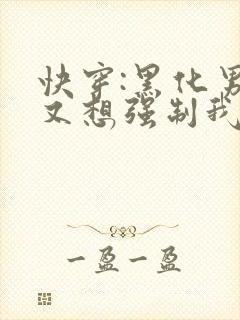 快穿:黑化男
又想强制我
一盈一盈